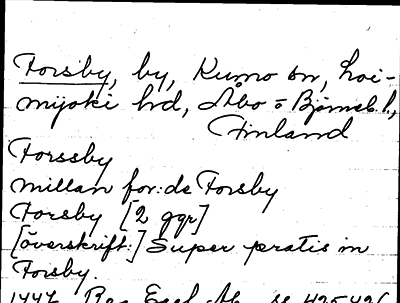 Forsby, by, Kumo sn, Loi-
mijoki hd, Åbo o Björneb. l.,
Finland
Forssby
millan for:de Forsby
Forsby [2 ggr]
[överskrift:] Super pratis in
Forsby.
1447 Reg. Eccl. Ab. s.